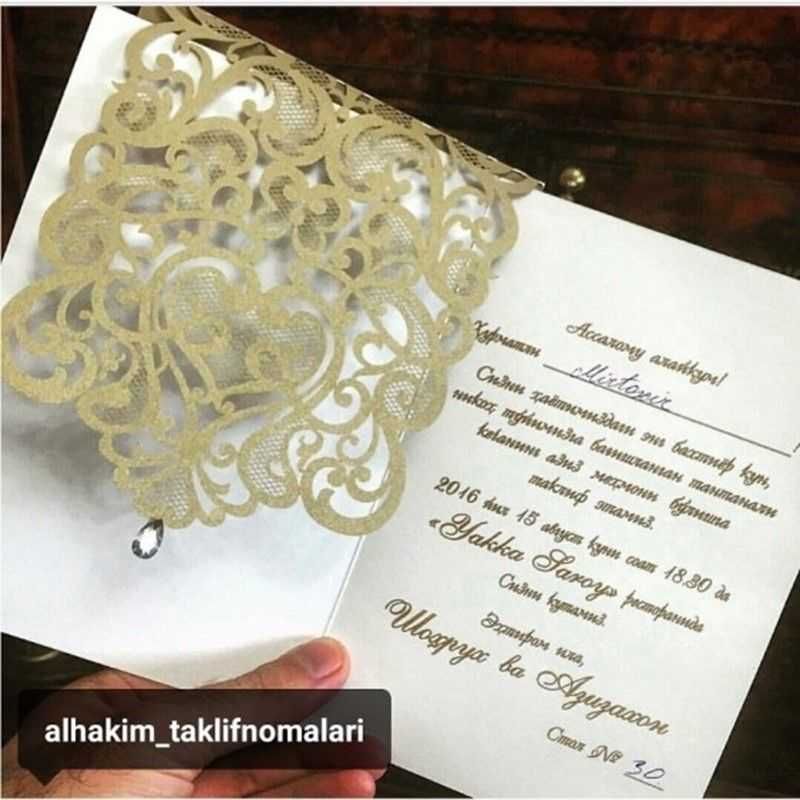 Ассалому алайкум!
Ҳурматли Mirtoxir !
Сизни ҳаётимиздаги энг бахтиёр кун,
никоҳ тўйимизга бағишланган тантанали
кечанинг азиз меҳмони бўлишга
таклиф этамиз.
2016 йил 15 август куни соат 18.30 да
«Yakka Saroy» ресторанида
Сизни кутамиз.
Эҳтиром ила,
Шоҳрух ва Азизахон
Стол № 30
alhakim_taklifnomalari